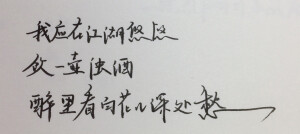 我应在江湖悠悠
饮一壶浊酒
醉里看百花儿深处愁